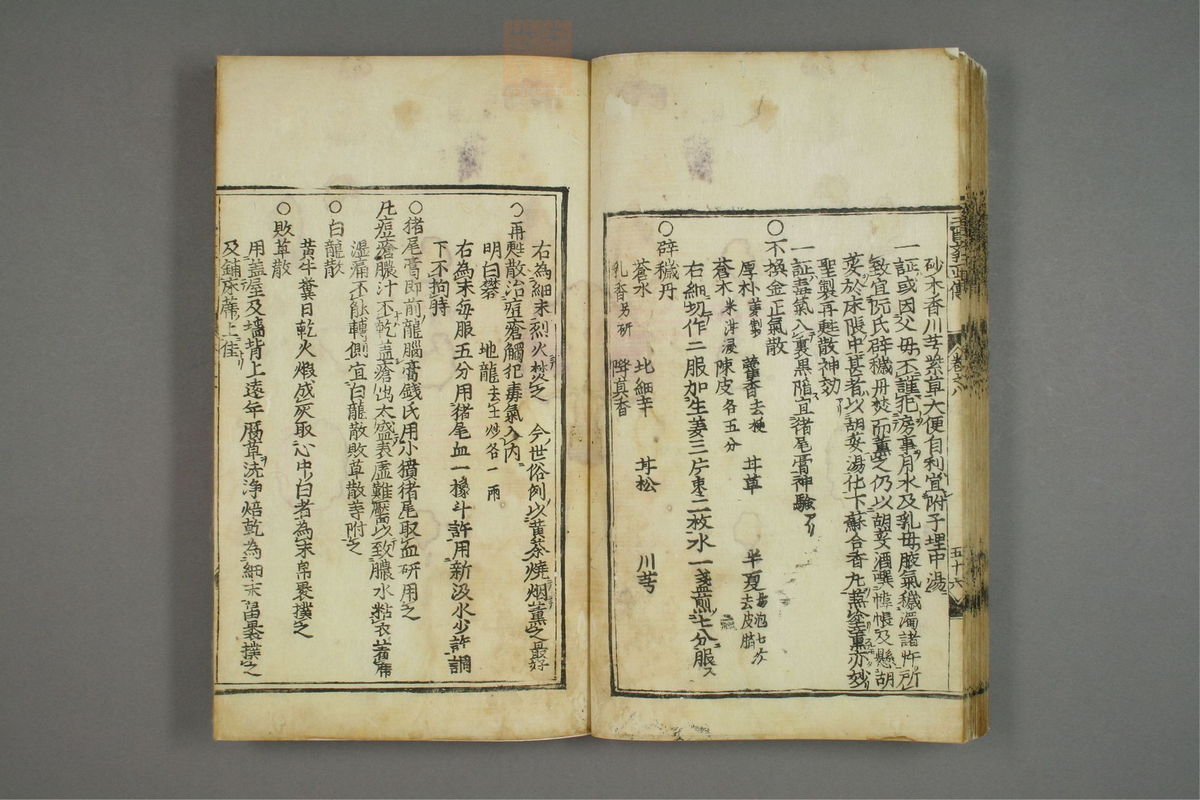 砂木香川芎紫草大便自利宜附子理中湯
一証或因父母不謹犯房事月水及乳母腋氣穢濁諸忤所
致宜阮氏辟穢丹焚而薰之仍以胡荽酒噀幃帳及懸胡
荽於床帳中甚者以胡荽湯化下蘇合香丸薰塗熏亦妙
一証毒氣入裏黒陥宜猪尾膏神驗
聖製再甦散神効
○不換金正氣散
厚朴姜製 藿香去梗 甘草 半夏湯泡七次去皮臍
蒼木米泔浸 陳皮各五分
右細切作二服加生姜三片棗二枚水一盞煎七分服
○辟穢丹
蒼水 北細辛 甘松 川芎
乳香另研 降真香
五十六
卷之八
右為細末烈火焚之 今世俗例以黄茶燒烟薰之最好
○再甦散治痘瘡觸犯毒氣入内
明白礬 地龍去土炒各一兩
右為末每服五分用猪尾血一橡斗許用新汲水少許調
下不拘時
○猪尾膏即前龍腦膏錢氏用小獖猪尾取血研用之
凡痘瘡膿汁不乾盖瘡出太盛表虚難靨以致膿水粘衣着席
濕痛不能轉側宜白龍散敗草散等附之
○白龍散
黄牛糞日乾火煅成灰取心中白者為末帛裹撲之
○敗草散
用盖屋及墻背上遠年腐草洗浄焙乾為細末帛裹撲之
及鋪床蓆上佳